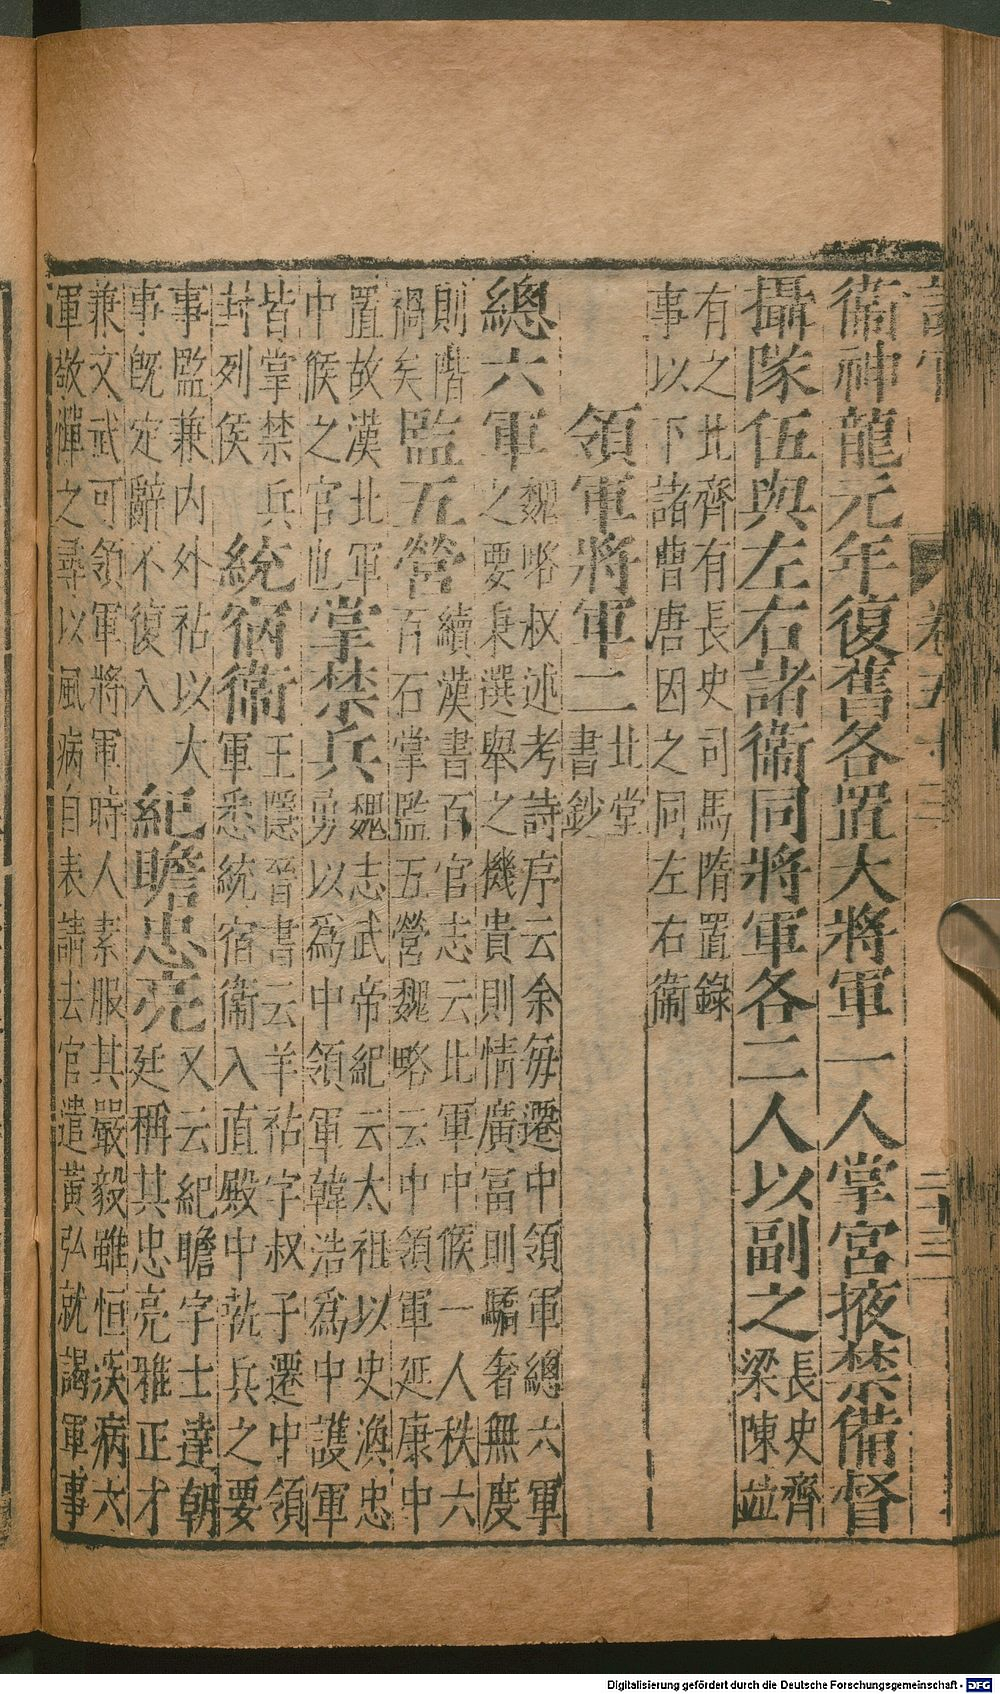 設官 卷五十三 二十三
衞神龍元年復舊各置大將軍一人掌宮掖禁備督
攝隊伍與左右諸衞同將軍各二人以副之長史齊
梁陳竝
有之北齊有長史司馬隋置錄
事以下諸曹唐因之同左右衞
領軍將軍二北堂
書鈔
總六軍魏略叔述考詩序云余每遷中領軍總六軍
之要秉選舉之機貴則情廣冨則驕奢無度
則階
禍矣
監五營續漢書百官志云北軍中候一人秩六
百石掌監五營魏略云中領軍延康中
置故漢北軍
中候之官也
掌禁兵魏志武帝紀云太祖以史渙忠
勇以爲中領軍韓浩爲中護軍
皆掌禁兵
封列侯
統宿衞王隱晉書云羊祜字叔子遷中領
軍悉統宿衞入直殿中執兵之要
事監兼內外祜以大
事旣定辭不復入
紀瞻忠亮又云紀瞻字士達朝
廷稱其忠亮雅正才
兼文武可領軍將軍時人素服其嚴毅雖恒疾病六
軍敬憚之尋以風病自表請去官遣黃弘就謁軍事
Digitalisierung gefördert durch die Deutsche Forschungsgemeinschaft - DFG